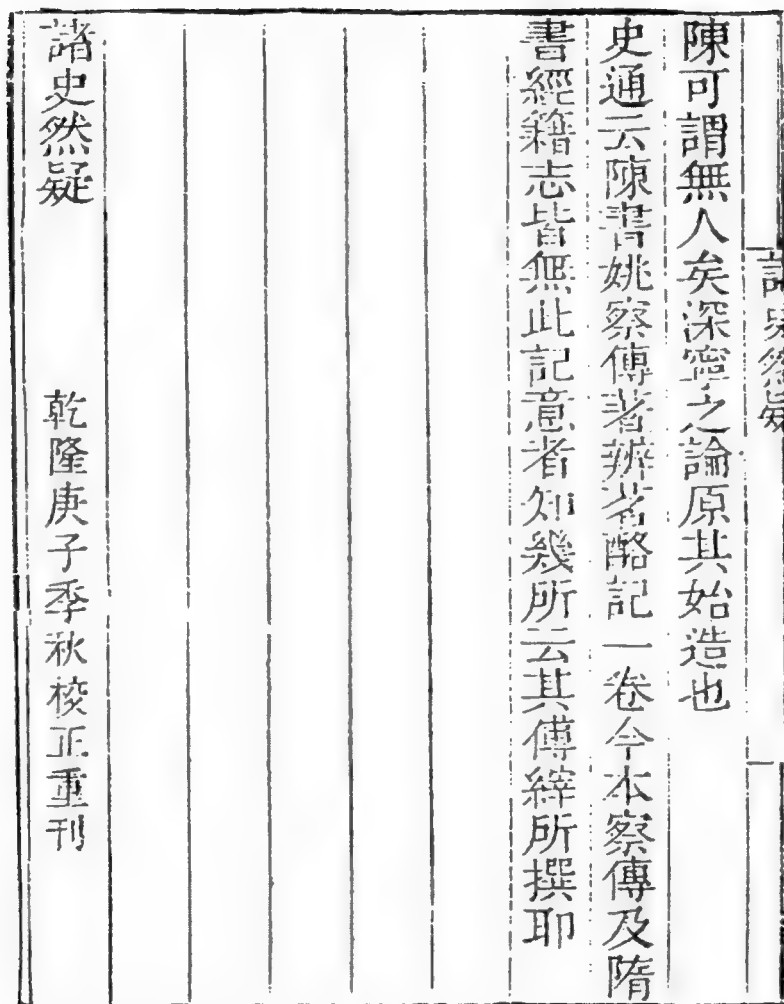 諸史然疑
陳可謂無人矣深寧之論原其始造也
史通云陳書姚察傳著辨茗酪記一卷今本察傳及隋
書經籍志皆無此記意者知幾所云其傅縡所撰耶
諸史然疑
乾隆庚子季秋校正重刊